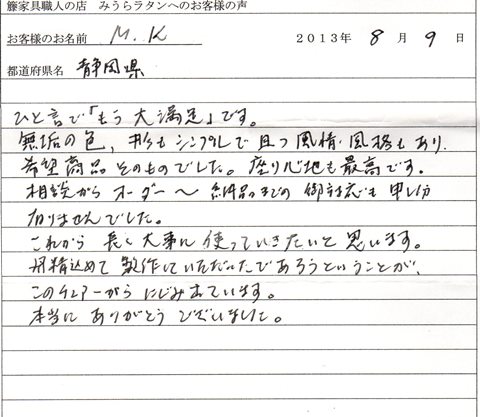 籐家具職人の店　みうらラタンへのお客様の声
お客様のお名前　M.K　2013年 8月 9日
都道府県名　静岡県
ひと言で「もう 大満足」です。
無垢の色、形もシンプルで 且つ 風情・風格もあり、
希望商品 そのものでした。座り心地も最高です。
相談から オーダー〜 納品までの 御対応も 申し分
ありませんでした。
これから 長く 大事に 使っていきたいと 思います。
丹精込めて 製作していただいたであろうということが、
このチェアーから にじみ出ています。
本当に ありがとう ございました。